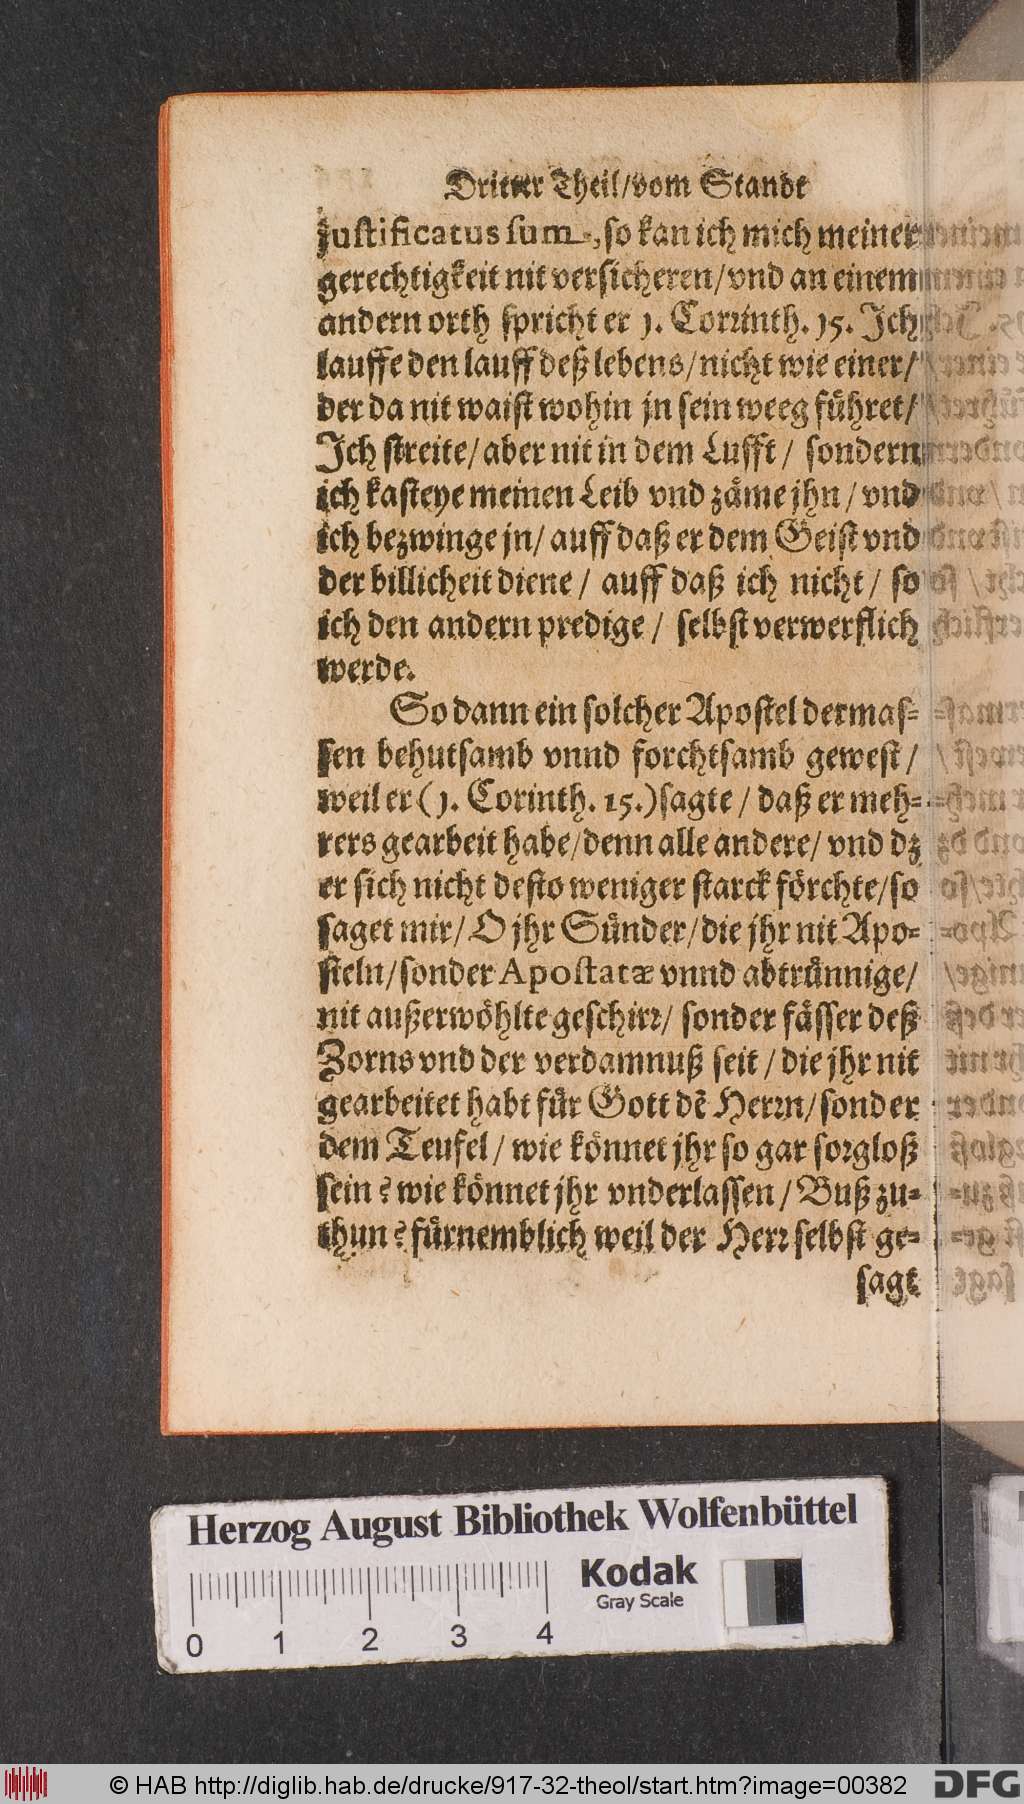 Dritter Theil/vom Standt
justificatus sum, so kan ich mich meiner
gerechtigkeit nit versicheren/vnd an einem
andern orth spricht er 1. Corinth. 15. Ich
lauffe den lauff deß lebens/nicht wie einer/
der da nit waist wohin jn sein weeg führet/
Ich streite/aber nit in dem Lufft/ sondern
ich kasteye meinen Leib vnd zäme jhn/vnd
ich bezwinge jn/ auff daß er dem Geist vnd
der billicheit diene/ auff daß ich nicht/ so
ich den andern predige/ selbst verwerflich
werde.
So dann ein solcher Apostel dermas-
sen behutsamb vnnd forchtsamb gewest/
weil er (1. Corinth. 15.) sagte/ daß er meh-
rers gearbeit habe/denn alle andere/ vnd dz
er sich nicht desto weniger starck förchte/so
saget mir/ O jhr Sünder/die jhr nit Apo-
steln/sonder Apostatæ vnnd abtrünnige/
nit außerwöhlte geschirr/ sonder fässer deß
Zorns vnd der verdamnuß seit/die jhr nit
gearbeitet habt für Gott dẽ Herrn/sonder
dem Teufel/ wie könnet jhr so gar sorgloß
sein? wie könnet jhr vnderlassen/Buß zu-
thun? fürnemblich weil der Herr selbst ge-
sagt
Herzog August Bibliothek Wolfenbüttel
Kodak
Gray Scale
0 1 2 3 4
© HAB http://diglib.hab.de/drucke/917-32-theol/start.htm?image=00382
DFG